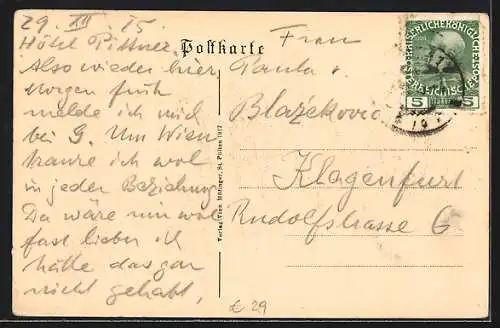 29. XII. 15.
Hôtel Pittner.
Also wieder hier
Morgen früh
melde ich mich
bei G. Um Wien
traure ich wol
in jeder Beziehung
Da wäre mir
fast lieber ich
hätte das gar
nicht gehabt,
Postkarte
Verlag Franz Höllinger, St. Pölten 1917
Frau
Paula
Blažeković
Klagenfurt
Rudolfstrasse 6
KAISERLICHE KÖNIGLICHE
ÖSTERREICHISCHE POST
5 5
€ 29